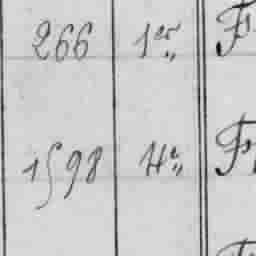 266 1er F
1598 4e F